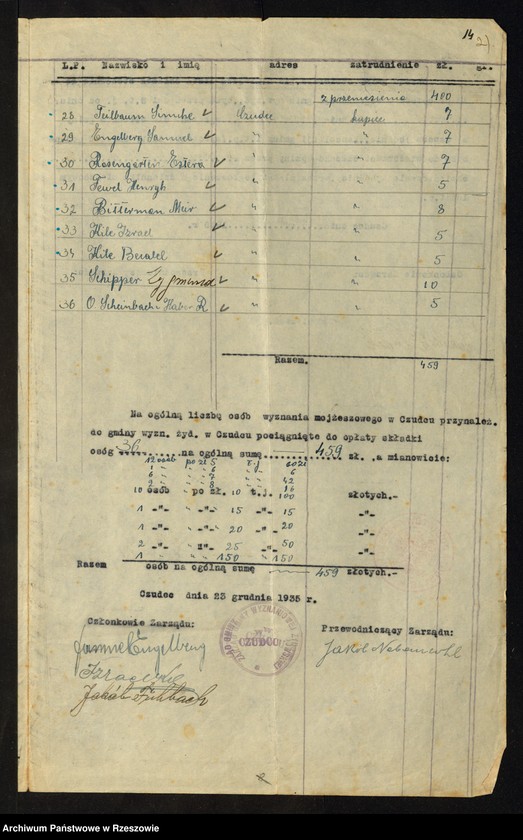 14
2)
L.P. Nazwisko i imię adres zatrudnienie zł. gr.
z przeniesienia 400
28 Teitbaum Simche ✓ Czudec kupiec 7
29 Engelberg Samuel ✓ " " 7
30 Rosengarten Estera ✓ " " 7
31 Tewel Henryk ✓ " " 5
32 Bitterman Meir ✓ " " 8
33 Hite Izrael ✓ " " 5
34 Hite ✓ " " 5
35 Schipper Zygmund ✓ " " 10
36 O. Scheinbach ✓ " " 5
Razem. 459
Na ogólną liczbę osób wyznania mojżeszowego w Czudcu przynależ.
do gminy wyzn. żyd. w Czudcu pociągnięte do opłaty składki
osóg 36 na ogólną sumę 459 zł. ,a mianowicie:
12 osób po zł 5 t.j. 60 zł
1 " " 6 " 6
6 " " 7 " 42
2 " " 8 " 16
10 osób po zł. 10 t.j. 100 złotych.-
1 -"- -"- 15 -"- 15 -"-
1 -"- -"- 20 -"- 20 -"-
2 -"- -"- 25 -"- 50 -"-
1 " " 150 " 150
Razem osób na ogólną sumę 459 złotych.-
Czudec dnia 23 grudnia 1935 r.
Członkowie Zarządu: Przewodniczący Zarządu:
Samuel Engelberg
CZUDCU
Jakób
Archiwum Państwowe w Rzeszowie